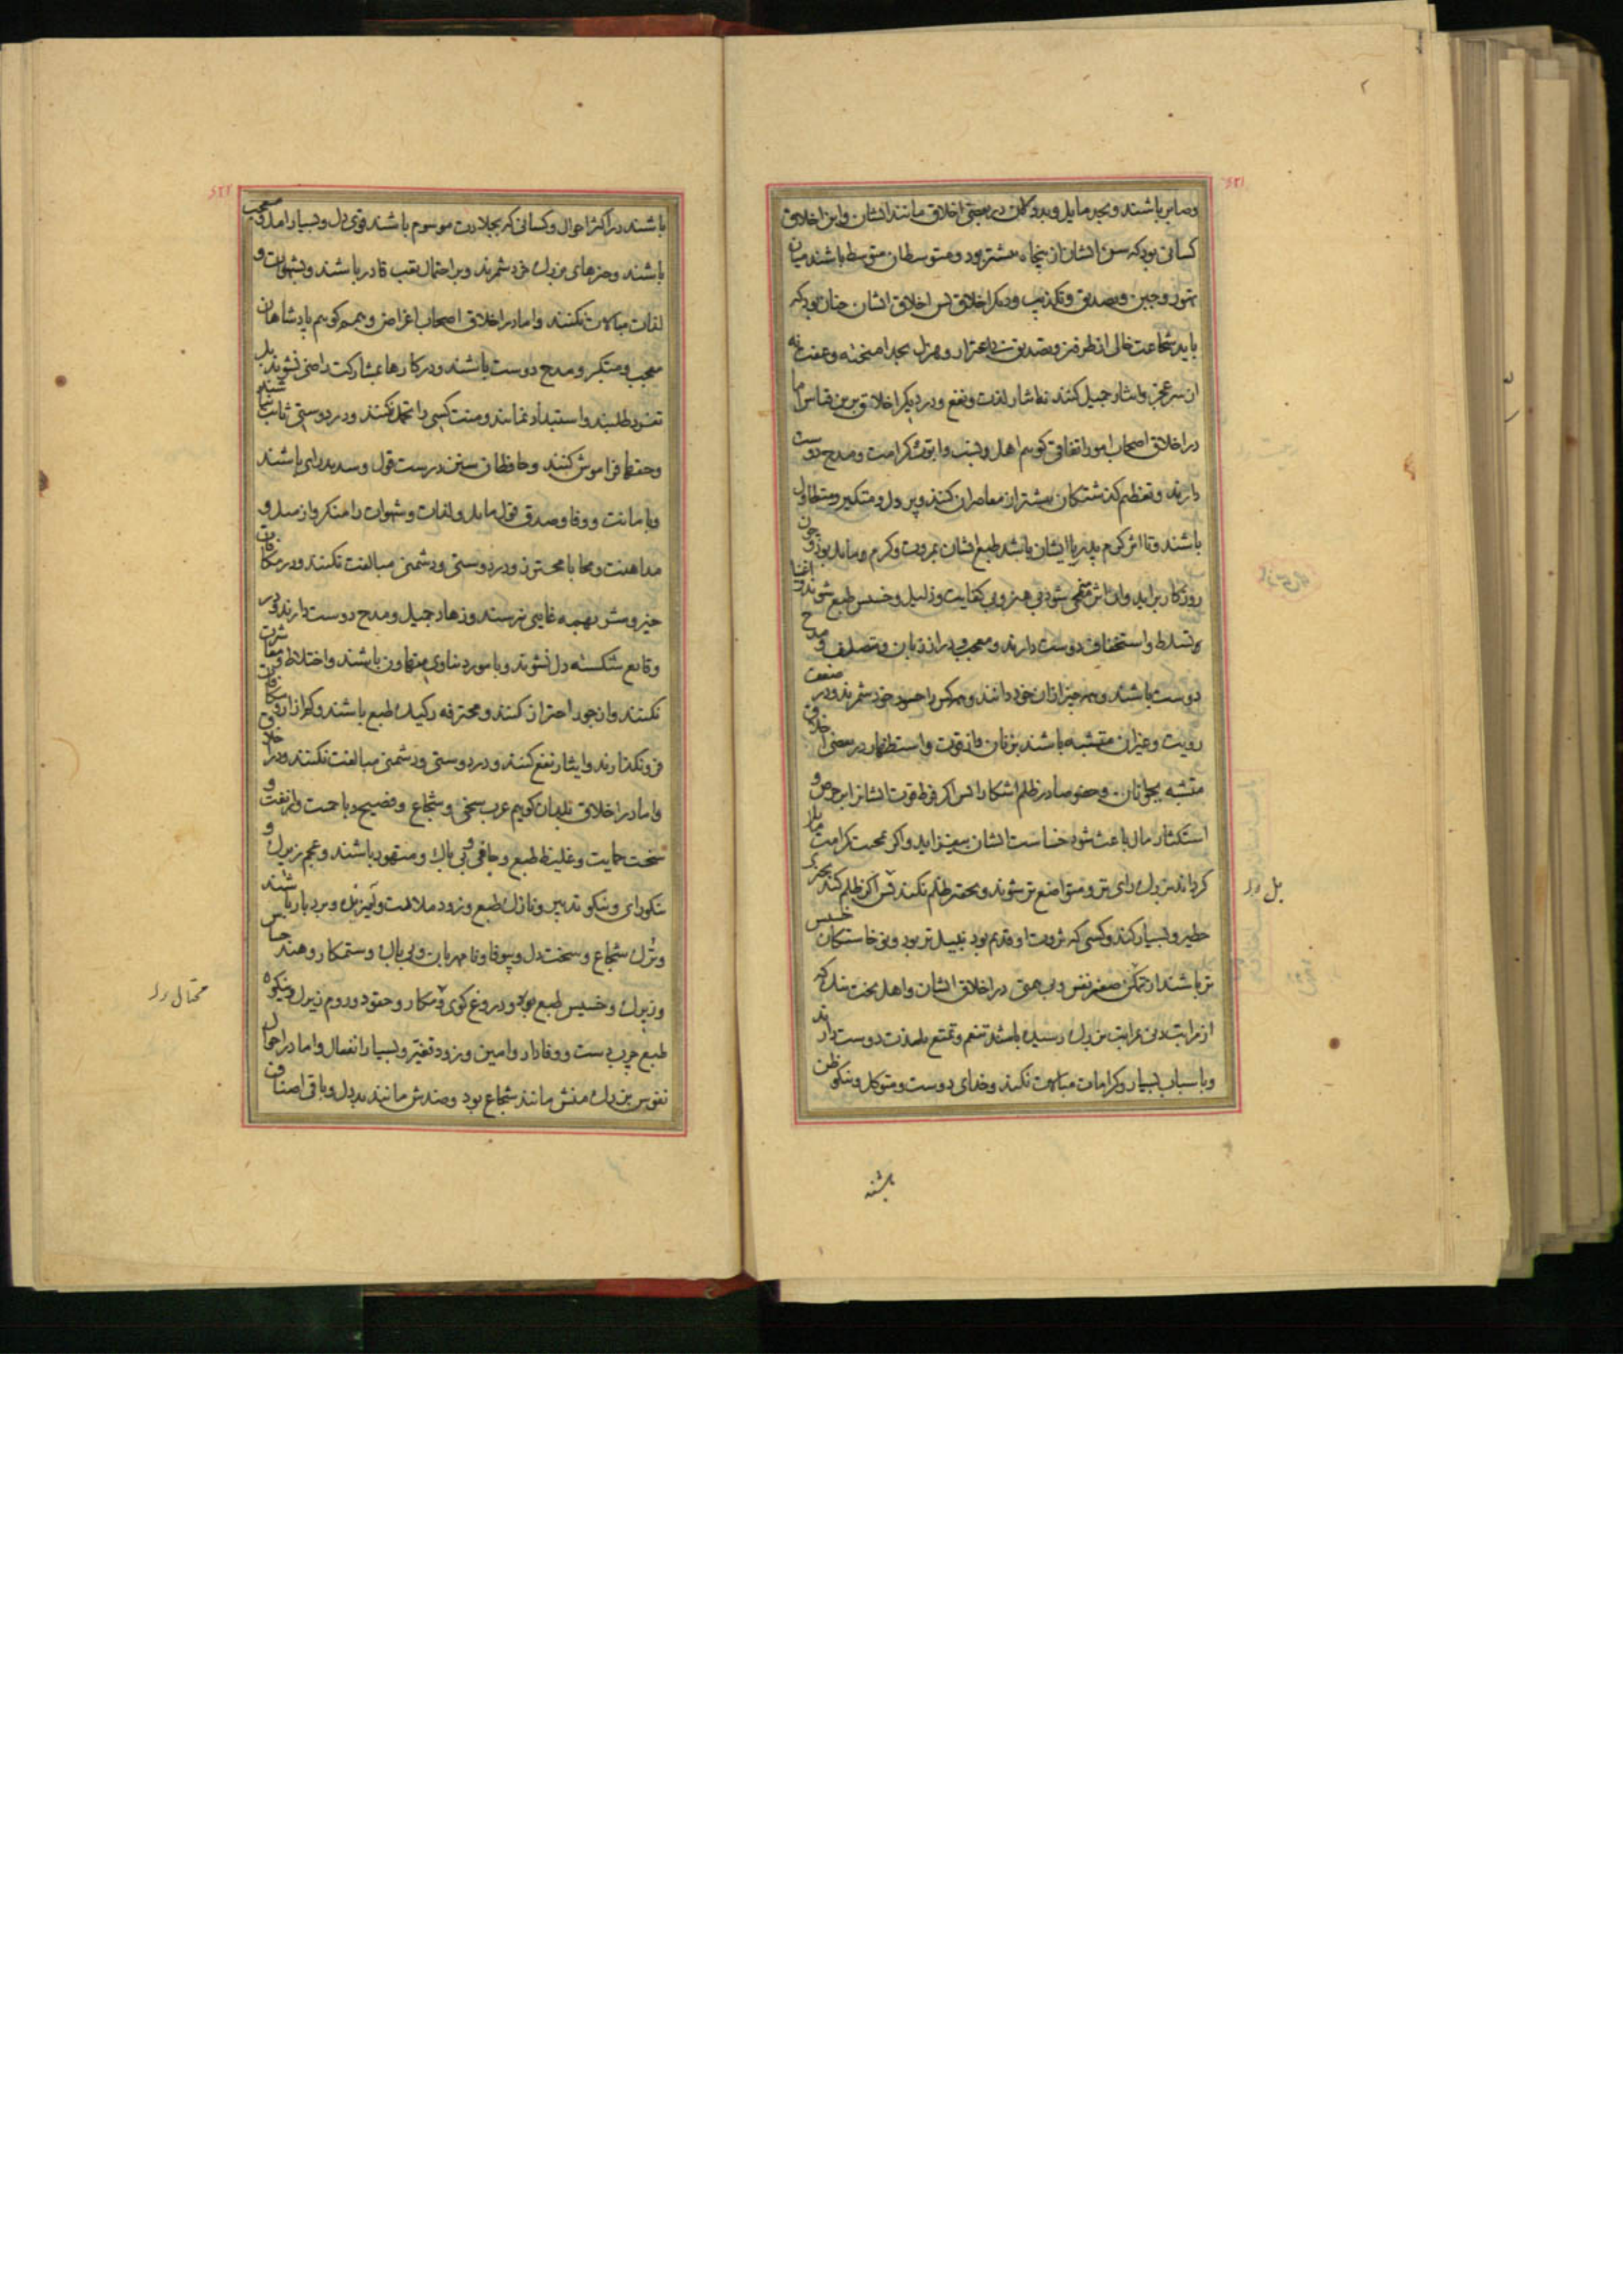 وصابر باشند و بجد مایل و بدو کمان در بعضی اخلاق مانند ایشان و این اخلاق
کسانی بود که سن ایشان از پنجاه بیشتر بود و متوسطان متوسط باشند میان
تهور و جبن و تصدیق و تکذیب و دیکر اخلاق پس اخلاق ایشان چنان بود که
باید شجاعت خالی از طرفین و تصدیق نه باغترار و هزل بجد آمیخته و عفت نه
از سر عجز و ایثار جمیل کنند نه ایثار لذت و نفع و در دیکر اخلاق برین قیاس اما
در اخلاق اصحاب امور اتفاقی کوییم اهل نسب و ابوت کرامت و مدح دوست
دارند و تعظیم کذشتکان بیشتر از معاصران کنند و پر دل و متکبر و متطاول
باشند و تا اثر کرم پدر با ایشان باشد طبع ایشان بمروت و کرم مایل بود و چون
روزکار برآید و آن اثر منمحی شود بی هنر و بی کفایت و ذلیل و خسیس طبع شوند و اغنیا
تسلط و استخفاف دوست دارند و معجب و دراز زبان و متصلف و مدح
دوست باشند و همه چیز از آن خود دانند و همه کس را حسود خود شمرند و در ضعف
رویت و غیر آن متشبه باشند بزنان و از قوت و استظهار در بعضی اخلاق
متشبه بجوانان و خصوصا در ظلم آشکارا پس اکر فرط قوت ایشانرا بر حرص و
استکثار مال باعث شود خساست ایشان بیفزاید و اکر بمحبت کرامت مایل
کرداند بزرک رای تر و متواضع تر شوند و بحقیر ظلم نکنند پس اکر ظلم کنند بچیزی
خطیر و بسیار کنند و کسی که ثروت او قدیم بود نبیل تر بود و نوخاستکان خسیس
تر باشند از تمکن صغر نفس و بی همتی در اخلاق ایشان و اهل بخت نیک که
از مراتب دون بمراتب بزرک رسیده باشند تنعم و تمتع بلذت دوست دارند
و باسباب بسیار و کرامات مبالات نکنند و خدای دوست و متوکل و نیکو ظن
باشند
بل رر
باشند در اکثر احوال و کسانی که بجلادت موسوم باشند قوی دل و بسیار امل و معجب
باشند و چیزهای بزرک خرد شمرند و بر احتمال تعب قادر باشند و بشهوات و
لذات مبالات نکنند و اما در اخلاق اصحاب اغراض و همم کوییم پادشاهان
معجب و متکبر و مدح دوست باشند و در کارها بمشارکت راضی نشوند بل
تفرد طلبند و استبداد نمایند و منت کسی را تحمل نکنند و در دوستی ثابت نباشند
و حقها فراموش کنند و حافظان سنن درست قول و سدید رای باشند
و بامانت و وفا و صدق قول مایل و لذات و شهوات را منکر و از میل و
مداهنت و محابا محترز و در دوستی و دشمنی مبالغت نکنند و در مکافات
خیر و شر بهمه غایتی نرسند و زهاد جمیل و مدح دوست دارند و در
وقایع شکسته دل نشوند و بامور دنیاوی متهاون باشند و اختلاط و معاشرت
نکنند و از جور احتراز کنند و محترفه رکیک طبع باشند و کم آزار و مکافات
فرونکذارند و ایثار نفع کنند و در دوستی و دشمنی مبالغت نکنند و در اخلاق
و اما در اخلاق بلدان کوییم عرب سخی و شجاع و فصیح و باحمیت و انفت و
سخت حمایت و غلیظ طبع و جافی و بی باک و متهور باشند و عجم زیرک و
نیکو رای و نیکو تدبیر و نازک طبع و زود ملالت و آمیزنده و بردبار باشند
و ترک شجاع و سخت دل و بیوفا و نامهربان و بی باک و ستمکار و هند حساس
و زیرک و خسیس طبع بود و دروغ کوی و مکار و حقود و روم زیرک و نیکو
طبع چرب دست و وفادار و امین و زود تغیر و بسیار انفعال و اما در احوال
نفوس بزرک منش مانند شجاع بود و ضدش مانند بددل و باقی اصناف
محتال رر